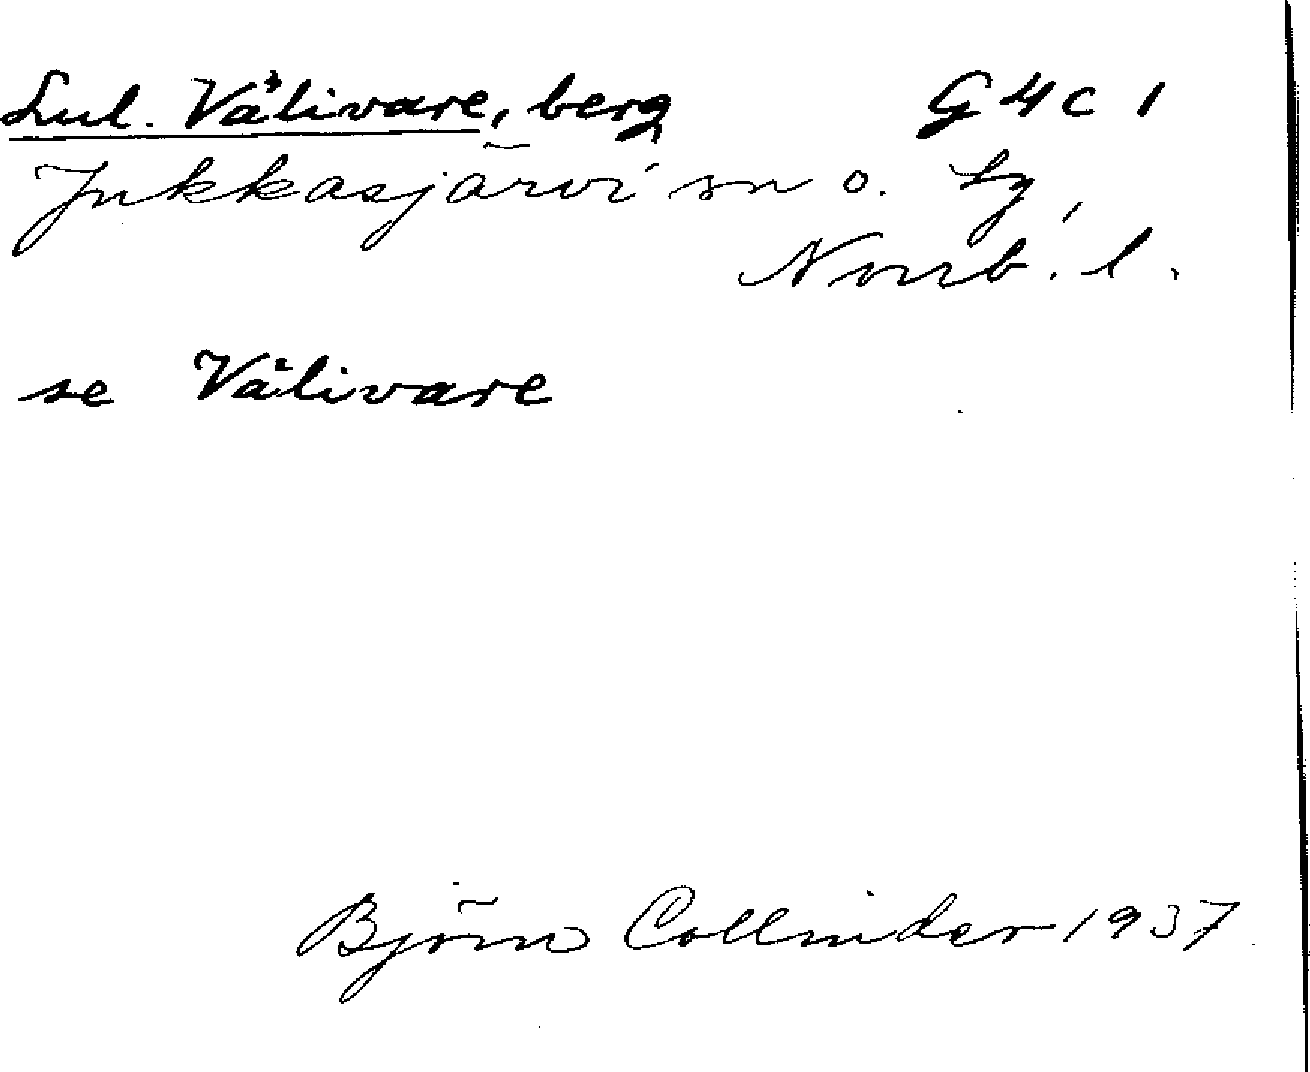 Lul. Välivare, berg G4c 1
Jukkasjärvi sn o. Lg,
Norrb. l.
se Välivare
Björn Collinder 1937